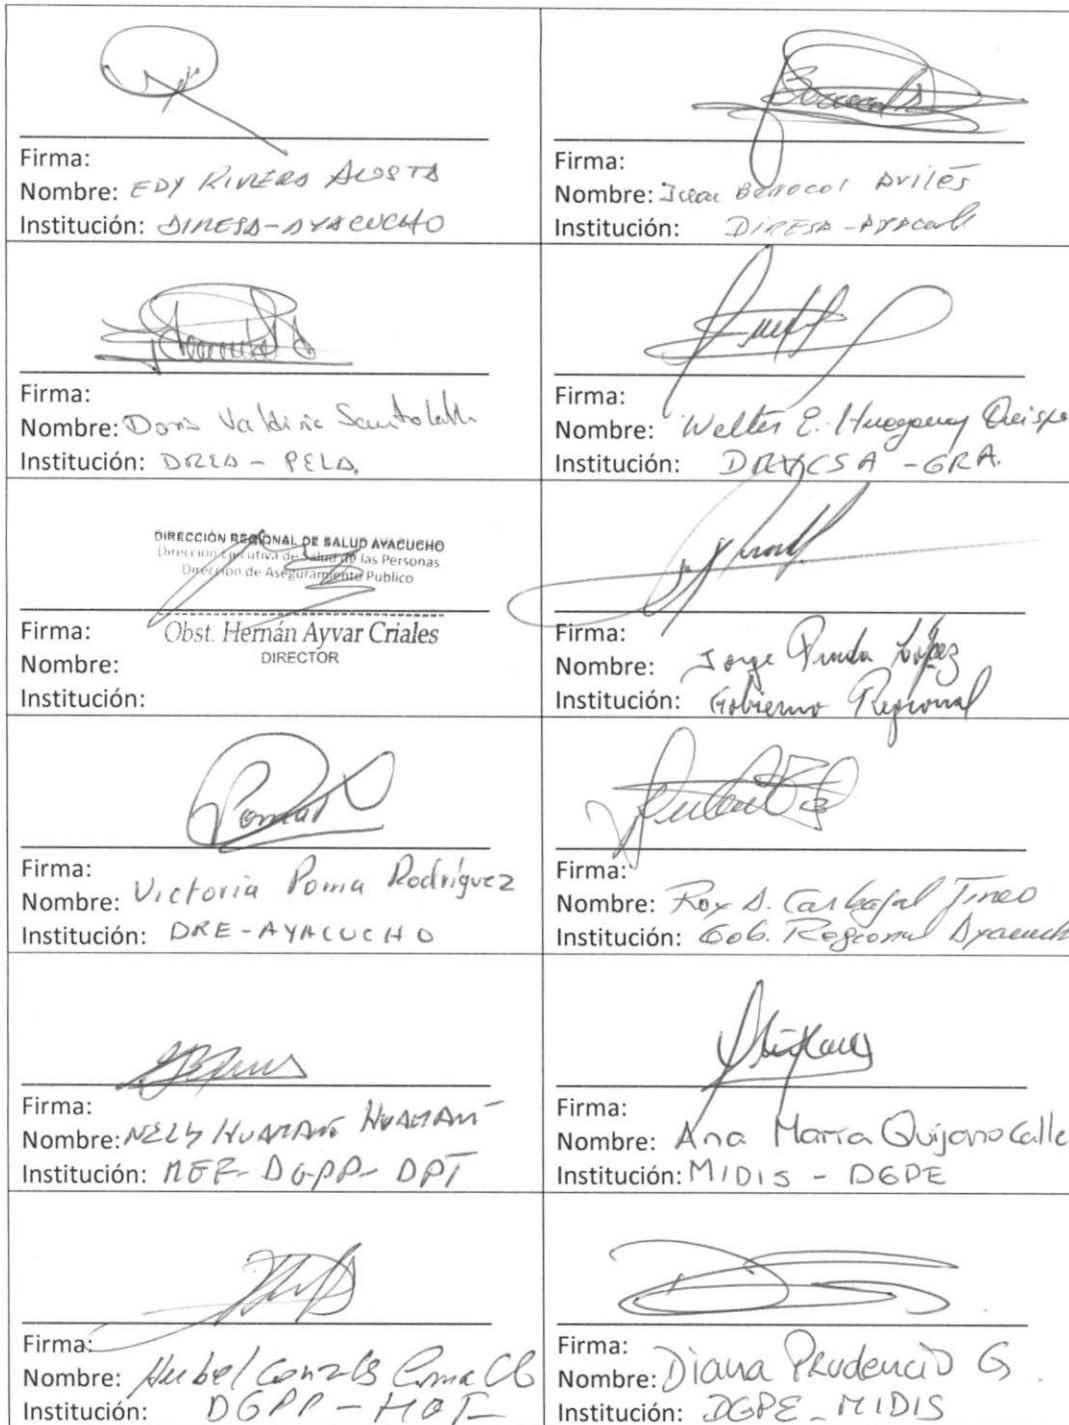 Firma:
Nombre: EDY RIVERA ACOSTA
Institución: DIRESA-AYACUCHO
Firma:
Nombre: Juan Berrocal Avilés
Institución: DIRESA-Ayacucho
Firma:
Nombre: Doris Valdivia
Institución: DREA - PELA.
Firma:
Nombre: Walter E. Quispe
Institución: DRVCSA - GRA.
DIRECCIÓN REGIONAL DE SALUD AYACUCHO
Dirección Ejecutiva de Salud de las Personas
Dirección de Aseguramiento Publico
Firma:
Obst. Hernán Ayvar Criales
DIRECTOR
Nombre:
Institución:
Firma:
Nombre: Jorge López
Institución: Gobierno Regional
Poma
Firma:
Nombre: Victoria Poma Rodríguez
Institución: DRE-AYACUCHO
Firma:
Nombre: Roy A. Carbajal Tineo
Institución: Gob. Regional Ayacucho
Firma:
Nombre: NELY HUAMANÍ HUAMANÍ
Institución: MEF-DGPP-DPT
Firma:
Nombre: Ana María Quijano Calle
Institución: MIDIS - DGPE
Firma:
Nombre:
Institución: DGPP -
Firma:
Nombre: Diana Prudencio G
Institución: DGPE - MIDIS